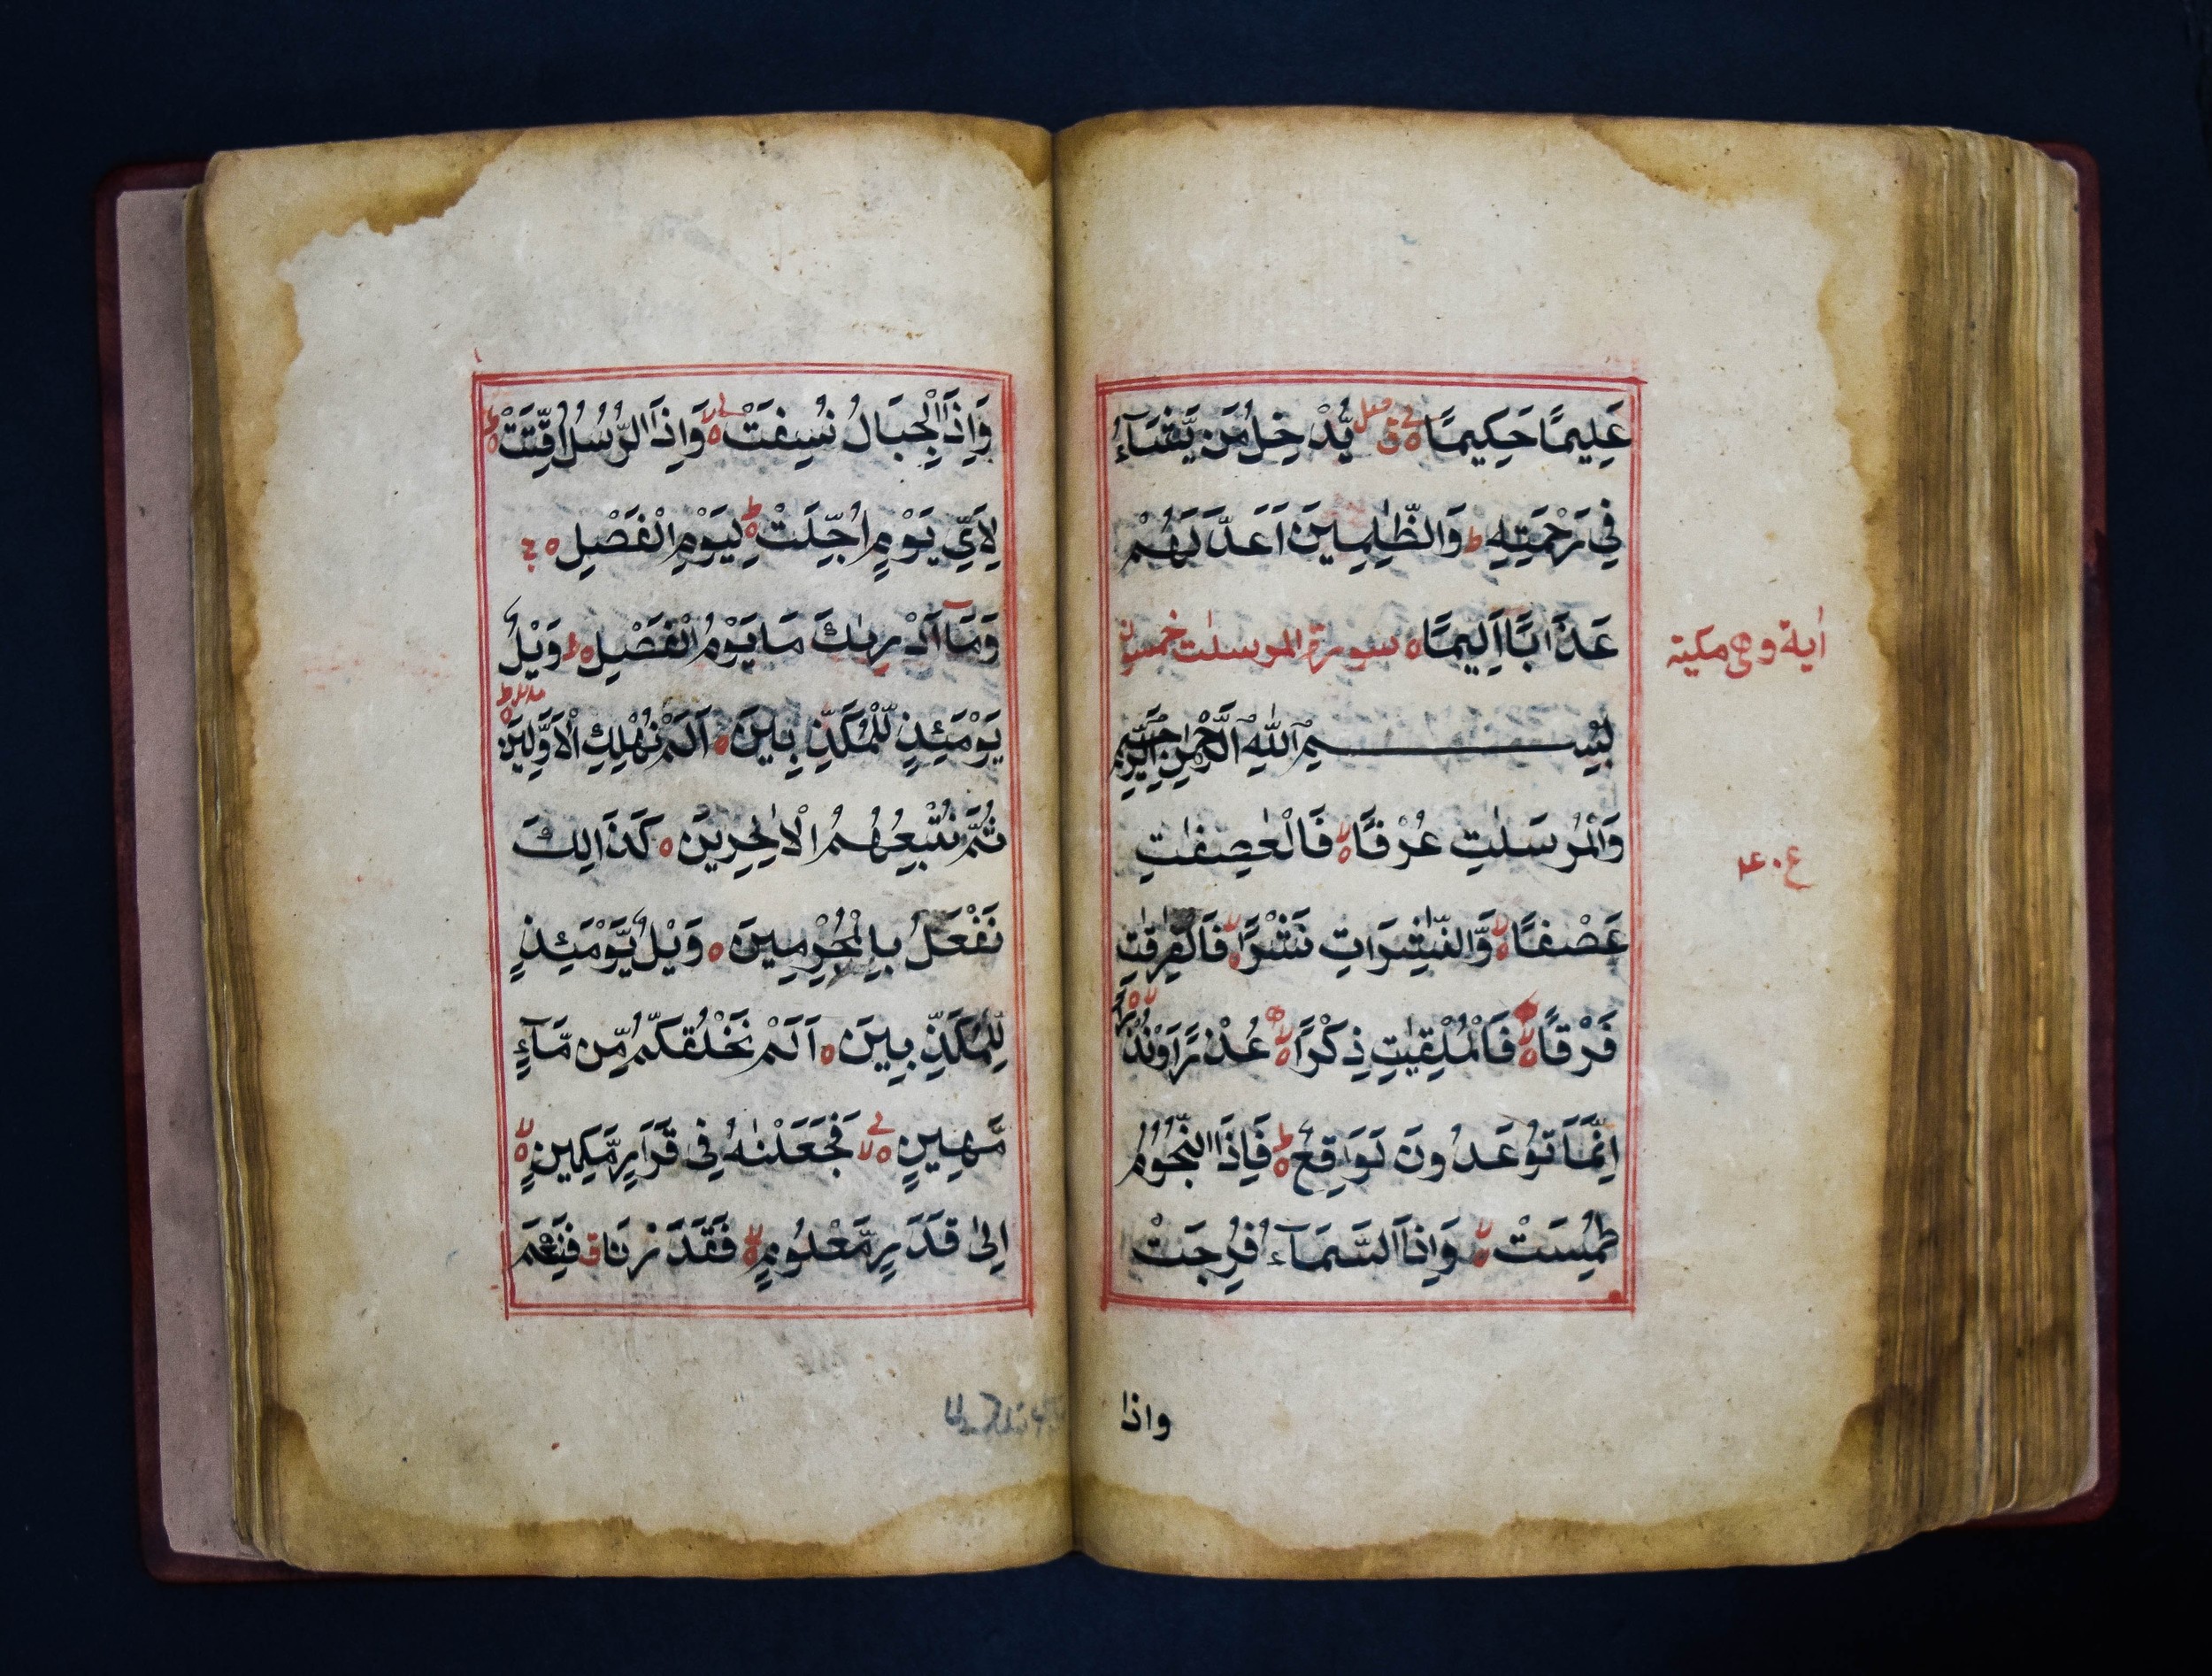 عَلِيمًا حَكِيمًا يُّدْخِلُ مَن يَّشَآءُ
فِي رَحْمَتِهٖ ط وَالظّٰلِمِينَ اَعَدَّ لَهُمْ
عَذَابًا اَلِيمًا ه سورة المرسلٰت خمسون
اٰية وهي مكية
بِسْمِ اللّٰهِ الرَّحْمٰنِ الرَّحِيمِ
وَالْمُرْسَلٰتِ عُرْفًا ه لا فَالْعٰصِفٰتِ
عَصْفًا ه لا وَّالنّٰشِرَاتِ نَشْرًا ه لا فَالْفٰرِقٰتِ
فَرْقًا ه لا فَالْمُلْقِيٰتِ ذِكْرًا ه لا عُذْرًا اَوْ نُذْرًا ه لا
اِنَّمَا تُوعَدُونَ لَوَاقِعٌ ه ط فَاِذَا النُّجُومُ
طُمِسَتْ ه لا وَاِذَا السَّمَآءُ فُرِجَتْ
واذا
وَاِذَا الْجِبَالُ نُسِفَتْ ه لا وَاِذَا الرُّسُلُ اُقِّتَتْ ه ط
لِاَيِّ يَوْمٍ اُجِّلَتْ ه ط لِيَوْمِ الْفَصْلِ ه ج
وَمَآ اَدْرٰىكَ مَا يَوْمُ الْفَصْلِ ه ط وَيْلٌ
يَّوْمَئِذٍ لِّلْمُكَذِّبِينَ ه اَلَمْ نُهْلِكِ الْاَوَّلِينَ ه ط
ثُمَّ نُتْبِعُهُمُ الْاٰخِرِينَ ه كَذَالِكَ
نَفْعَلُ بِالْمُجْرِمِينَ ه وَيْلٌ يَّوْمَئِذٍ
لِّلْمُكَذِّبِينَ ه اَلَمْ نَخْلُقكُّمْ مِّن مَّآءٍ
مَّهِينٍ ه لا فَجَعَلْنٰهُ فِي قَرَارٍ مَّكِينٍ ه لا
اِلٰى قَدَرٍ مَّعْلُومٍ ه لا فَقَدَرْنَا ق فَنِعْمَ